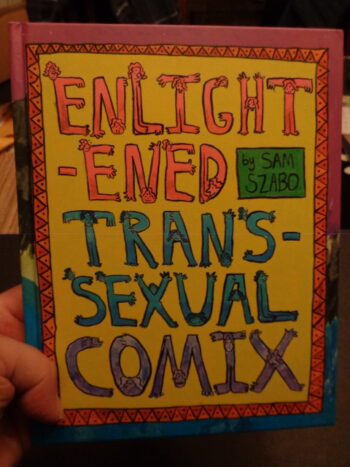 ENLIGHT
-ENED
by SAM
SZABO
TRANS-
SEXUAL
COMIX